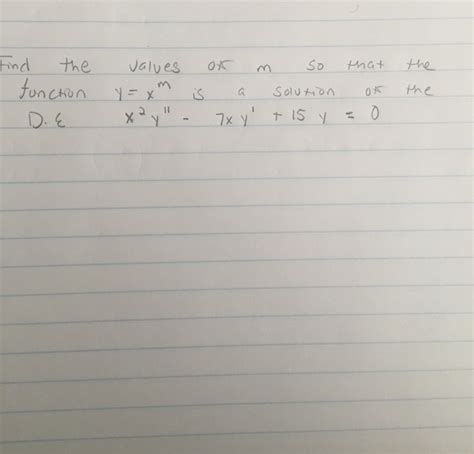 Find the values of m so that the
function y = x^m is a solution of the
D.E x²y'' - 7xy' + 15y = 0